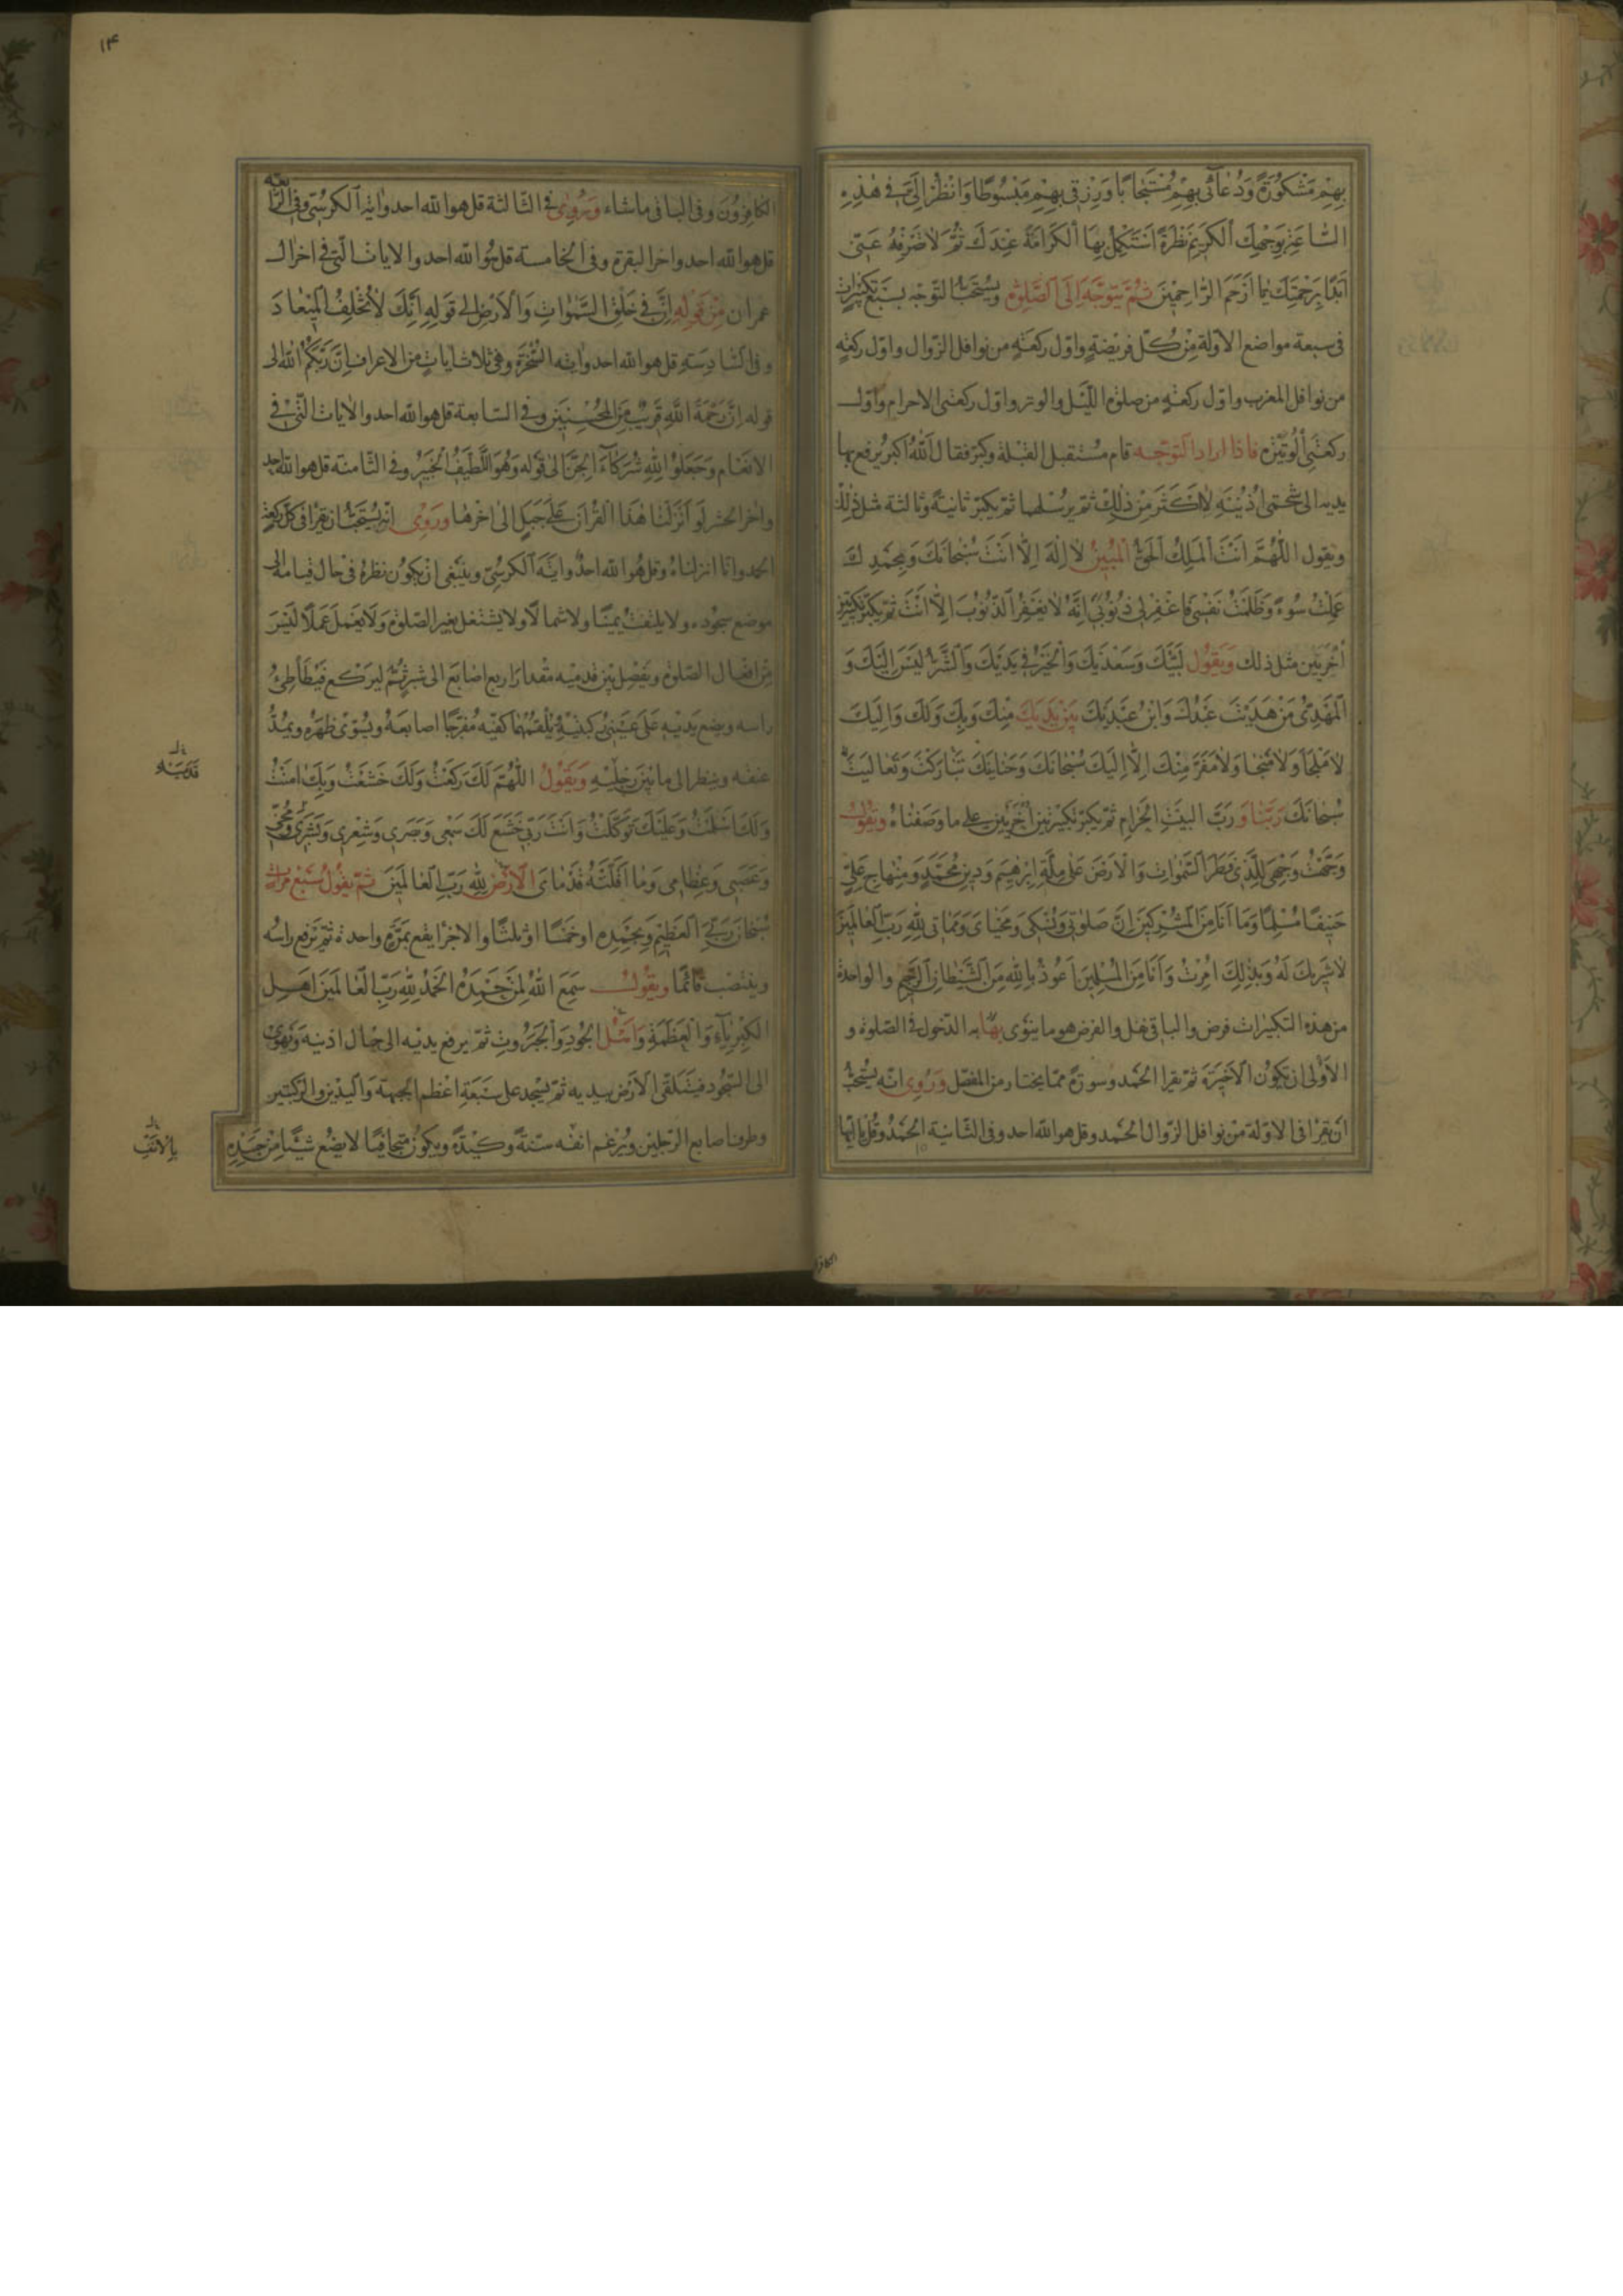 بِهِمْ مَشْكُورَةً وَدُعآئى بِهِمْ مُسْتَجابًا وَرِزْقى بِهِمْ مَبْسُوطًا وَانْظُرْ اِلَىَّ فى هٰذِهِ
السّاعَةِ بِوَجْهِكَ الْكَرِيمِ نَظْرَةً اَسْتَكْمِلُ بِهَا الْكَرامَةَ عِنْدَكَ ثُمَّ لا تَصْرِفْهُ عَنّى
اَبَدًا بِرَحْمَتِكَ يا اَرْحَمَ الرّاحِمِينَ ثُمَّ يَتَوَجَّهُ اِلَى الصَّلوٰةِ ويُسْتَحَبُّ التوجّه بسَبْع تكبيرات
فى سبعة مواضع الاوّلة مِنْ كلّ فريضةٍ واوّل ركعَةٍ من نوافل الزّوال واوّل ركعةٍ
من نوافل المغرب واوّل ركعةٍ من صلوة اللّيْل والوتر واوّل ركعتى الاحرام واوّل
ركعَتَىِ الْوُتَيْرَةِ فاذا اراد التّوجّه قام مُسْتقبل القبْلة وكبّر فقال اَللّٰهُ اَكبَرُ يرفع بها
يديه الى شحمتى اُذُنَيْهِ لا اكثَرَ مِنْ ذٰلِكَ ثمّ يرسُلهما ثمّ يكبّر ثانيةً وثالثة مثل ذٰلك
ويقول اللّٰهُمَّ اَنْتَ الْمَلِكُ الْحَقُّ الْمُبينُ لا اِلٰهَ اِلّا اَنْتَ سُبْحانَكَ وَبِحَمْدِكَ
عَمِلْتُ سُوءً وَظَلَمْتُ نَفْسى فَاغْفِرْ لى ذُنُوبى اِنَّهُ لا يَغْفِرُ الذّنُوبَ اِلّا اَنْتَ ثمّ يكبّر تكبيرتين
اُخْرَيَيْنِ مثل ذلك وَيَقُولُ لَبَّيْكَ وَسَعْدَيْكَ وَالْخَيْرُ فى يَدَيْكَ وَالشَّرُّ لَيْسَ اِلَيْكَ وَ
الْمَهْدِىُّ مَنْ هَدَيْتَ عَبْدُكَ وَابْنُ عَبْدَيْكَ بَيْنَ يَدَيْكَ مِنْكَ وَبِكَ وَلَكَ وَاِلَيْكَ
لا مَلْجَأَ وَلا مَنْجا وَلا مَفَرَّ مِنْكَ اِلّا اِلَيْكَ سُبْحانَكَ وَحَنانَيْكَ تَبارَكْتَ وَتَعالَيْتَ
سُبْحانَكَ رَبَّنا وَرَبَّ الْبَيْتِ الْحَرامِ ثمّ يكبّر تكبيرتين اُخْرَيَيْنِ على ما وصَفناهُ ويَقُولُ
وَجَّهْتُ وَجْهِىَ لِلَّذى فَطَرَ السَّمٰواتِ وَالْاَرْضَ عَلى مِلَّةِ اِبْرٰهيمَ وَدِينِ مُحَمَّدٍ وَمِنْهاجِ عَلِىٍّ
حَنيفًا مُسْلِمًا وَما اَنَا مِنَ الْمُشْرِكينَ اِنَّ صَلٰوتى وَنُسُكى وَمَحْياىَ وَمَماتى لِلّٰهِ رَبِّ الْعالَمينَ
لا شَرِيكَ لَهُ وَبِذٰلِكَ اُمِرْتُ وَاَنَا مِنَ الْمُسْلِمينَ اَعُوذُ بِاللهِ مِنَ الشَّيْطانِ الرَّجيمِ والواحدة
من هذه التكبيرات فرض والباقى نفل والفرض هو ما ينوى بها به الدّخول فى الصّلوة و
الاَوْلى ان تكون الاَخيرَة ثمّ يقرا الحَمْد وسورةً ممّا يختار من المفصّل وَرُوِىَ انّه يستحبُّ
ان يَقرَا فى الاوّلة مِنْ نوافل الزّوال الحَمْد وقل هو الله احد وفى الثّانية الحَمْدُ وقُل يا ايّها
الكافر
١۴
الكافِرُونَ وفى الباقى ما شاء وَرُوِىَ فى الثّالثة قل هو الله احد وايَة الكرسىّ وفى الرّابعة
قل هو الله احد واخر البقرة وفى الخامسة قل هُوَ الله احد والايات الّتى فى اخر ال
عمران مِنْ قَوْلِهِ اِنَّ فى خَلْقِ السَّمٰواتِ وَالْاَرْضِ الى قَولِهِ اِنَّكَ لا تُخْلِفُ الْميعادَ
وفى السّادِسَةِ قل هو الله احد وايَة السُّخْرَةِ وهى ثلاث اياتٍ من الاعراف اِنَّ رَبَّكُمُ اللهُ الى
قوله اِنَّ رَحْمَةَ اللهِ قَريبٌ مِنَ الْمُحْسِنينَ وفى السّابعة قل هو الله احد والايات الّتى فى
الانعام وَجَعَلُوا لِلّٰهِ شُرَكآءَ الْجِنَّ الى قوله وَهُوَ اللَّطيفُ الْخَبيرُ وفى الثّامنة قل هو الله احد
واخر الحشر لَوْ اَنْزَلْنا هٰذَا الْقُرْانَ عَلى جَبَلٍ الى اٰخرها ورَوِىَ انّه يُسْتَحَبُّ ان يقرا فى كلّ ركعة
الحمد وانّا انزلناهُ وقل هُو الله احدٌ وايَةَ الكرسىّ وينبغى ان يكون نظرهُ فى حال قيامه الى
موضع سجُوده ولا يلتفت يمينًا ولا شمالًا ولا يشتغل بغير الصّلوة وَلا يَعْمل عَملًا لَيْسَ
مِنْ افعال الصّلوة ويَفْصِل بيْن قدميْه مقْدار اربع اصابع الى شِبْرٍ ثُمَّ ليَرْكع فَيُطَأْطِئُ
راسه ويضع يَديْهِ عَلى عَيْنَىْ ركبتَيْهِ يُلْقمُهُما كفّيْه مُفرّجًا اصابعَهُ ويُسَوّى ظهْرَهُ ويمُدُّ
عنقه وينظر الى ما بَيْنَ رِجلَيْهِ وَيَقُولُ اللّٰهُمَّ لَكَ رَكَعْتُ وَلَكَ خَشَعْتُ وَبِكَ اٰمَنْتُ
قَدَمَيْهِ
وَلَكَ اَسْلَمْتُ وَعَلَيْكَ تَوَكَّلْتُ وَاَنْتَ رَبّى خَشَعَ لَكَ سَمْعى وَبَصَرى وَشَعْرى وَبَشَرى وَمُخّى
وَعَصَبى وَعِظامى وَما اَقَلَّتْهُ قَدَماىَ الْاَرْضُ لِلّٰهِ رَبِّ الْعالَمينَ ثمّ يقُولُ سَبْعَ مرات
سُبْحانَ رَبّىَ الْعَظيمِ وَبِحَمْدِهِ او خَمْسًا او ثلثًا والاجزا يقع بمَرّةٍ واحدة ثمّ يَرْفع راسَه
وينتصب قائمًا ويقُولُ سَمِعَ اللهُ لِمَنْ حَمِدَهُ الْحَمْدُ لِلّٰهِ رَبِّ الْعالَمينَ اَهْلِ
الْكِبْرِيآءِ وَالْعَظَمَةِ وَاَهْلَ الْجُودِ وَالْجَبَرُوتِ ثمّ يرفع يديْه الى حيال اذنيه وَيَهْوى
الى السّجود فيَتَلَقّى الاَرْض بيديه ثمّ يسْجد على سَبْعَةِ اعْظم الجبهة وَاليَدَيْن والرّكبتَيْن
وطرف اصابع الرّجلين ويُرْغم انفه سنّةً وكيْدةً ويكونُ متجافيًا لا يضَعُ شيئًا مِنْ جَسَدِهِ
بِالْاَنْفِ